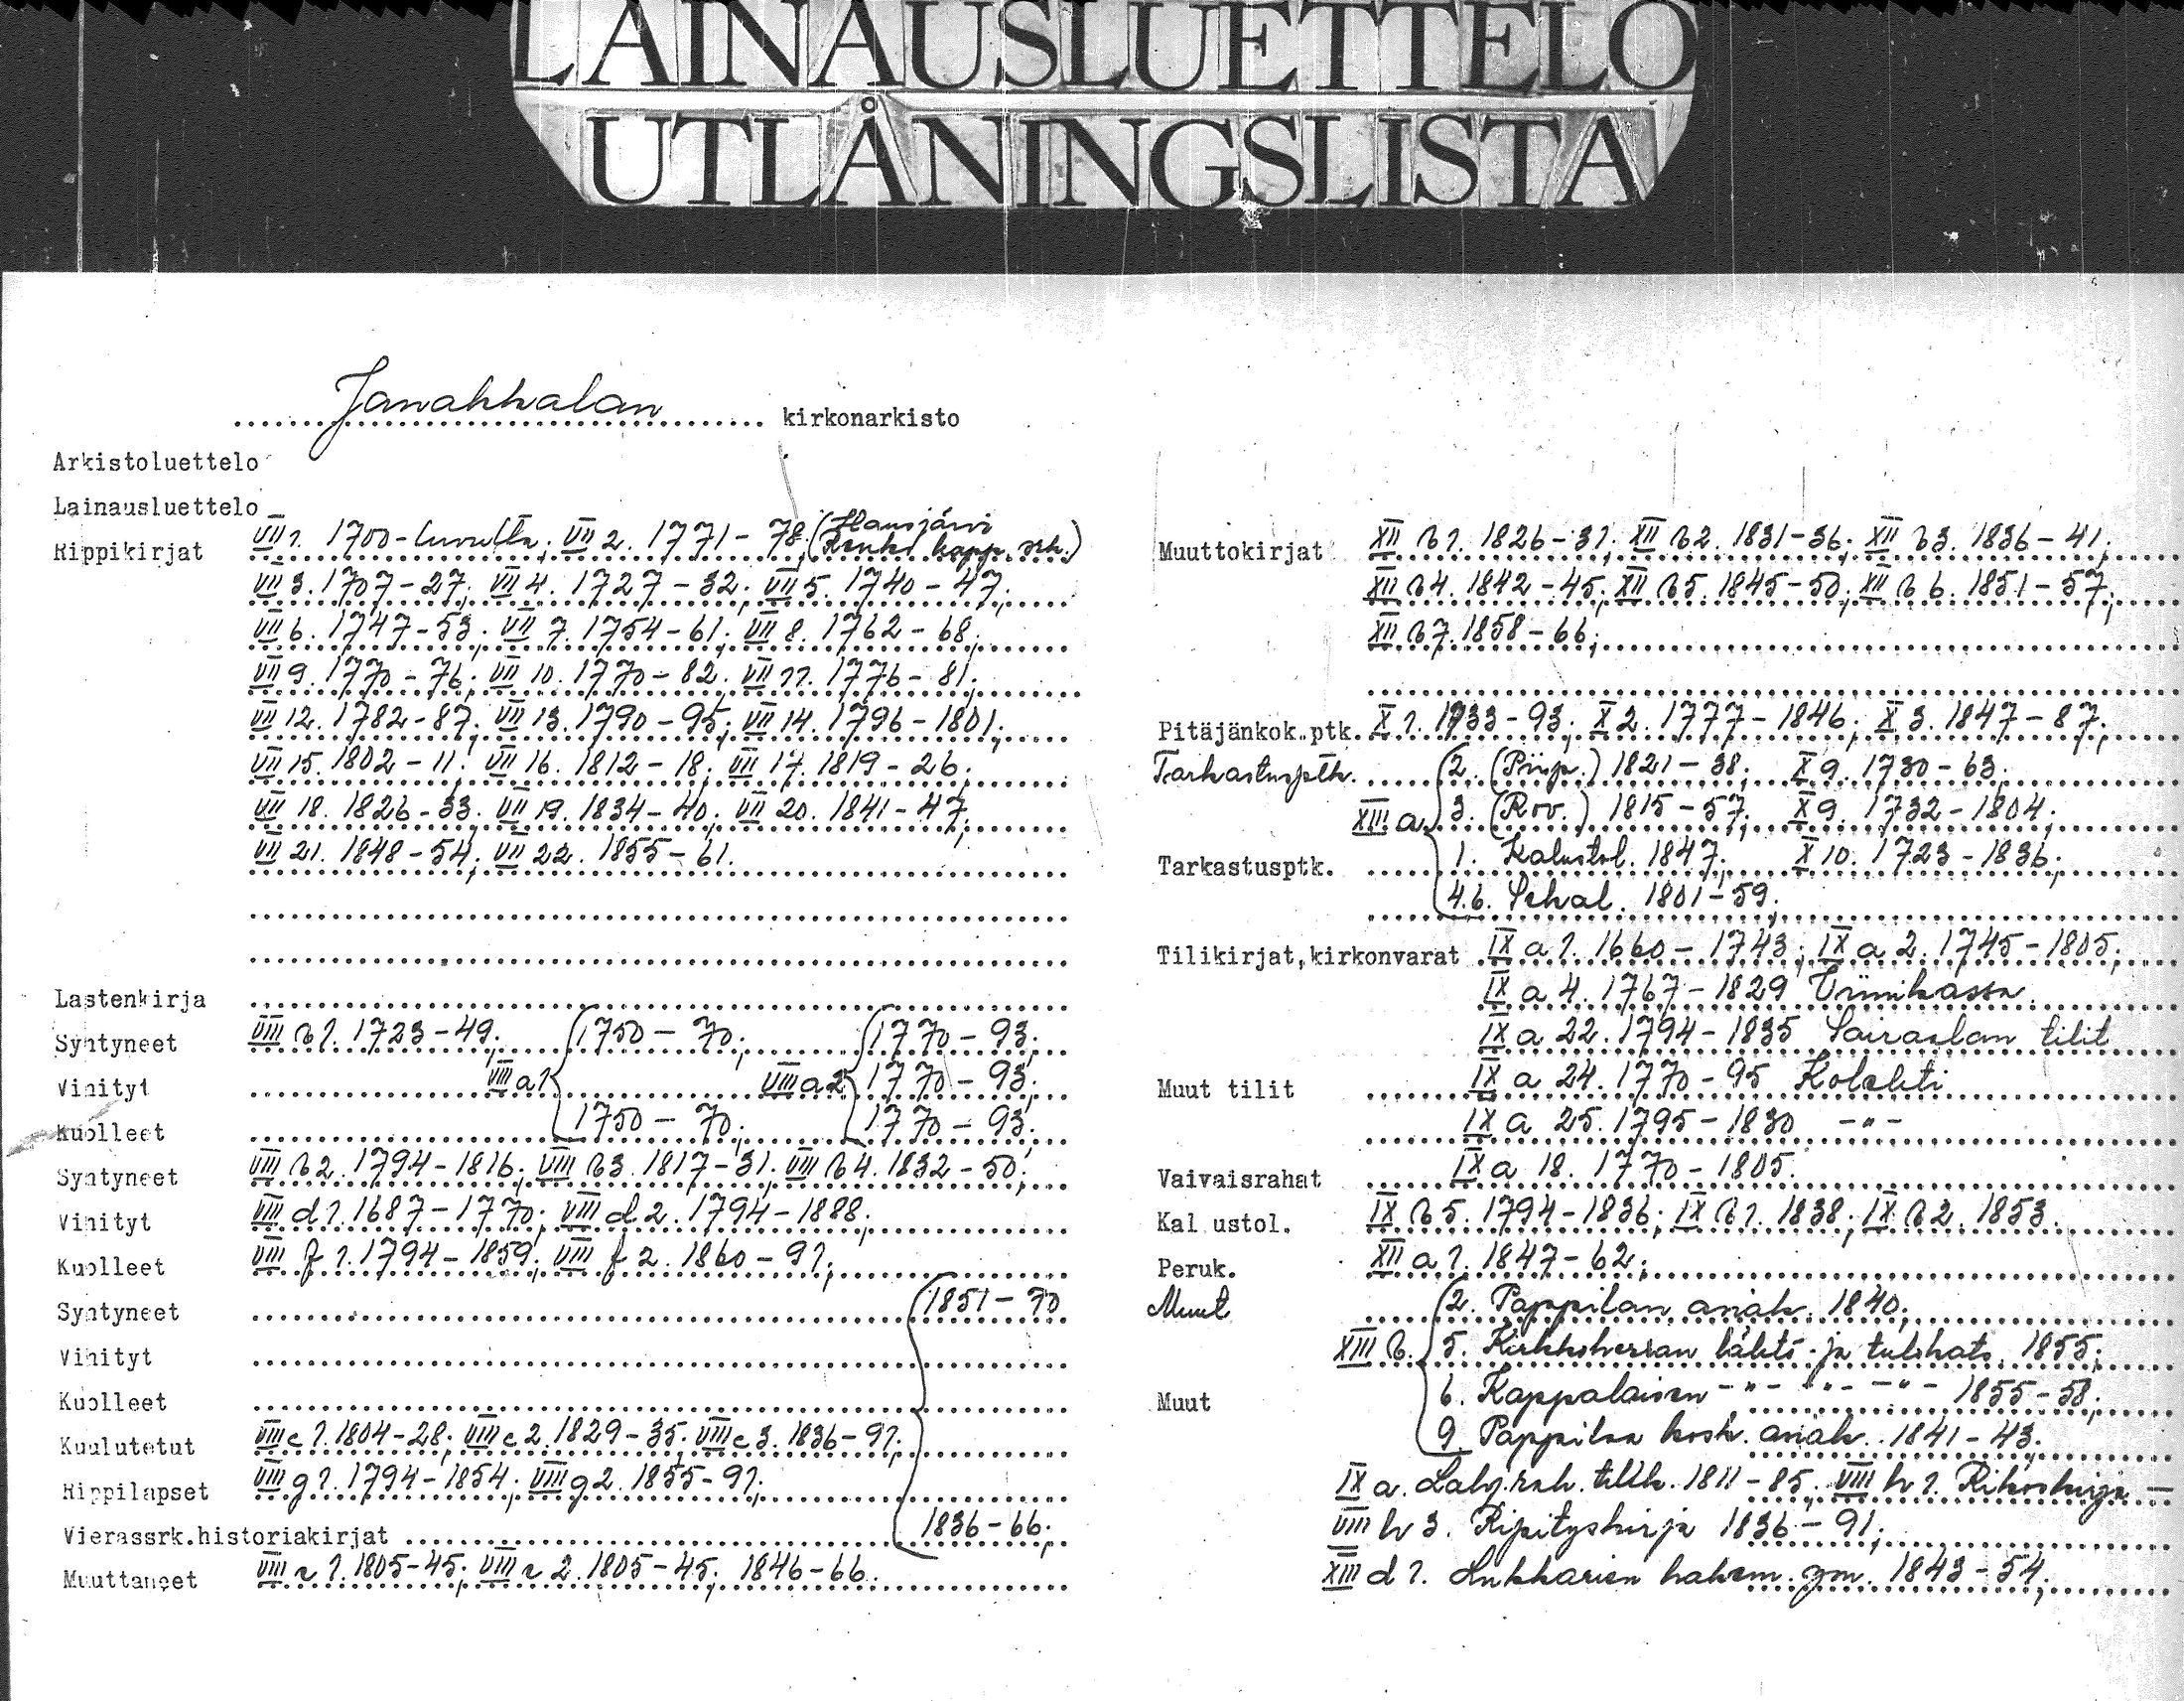 LAINAUSLUETTELO
UTLÅNINGSLISTA
Janakkalan kirkonarkisto
Arkistoluettelo
Lainausluettelo
Rippikirjat VII 1. 1700-luvulta; VII 2. 1771-78 (Hausjärvi kapp. srk.)
VII 3. 1707-27; VII 4. 1727-32; VII 5. 1740-47;
VII 6. 1747-53; VII 7. 1754-61; VII 8. 1762-68;
VII 9. 1770-76; VII 10. 1770-82; VII 11. 1776-81;
VII 12. 1782-87; VII 13. 1790-95; VII 14. 1796-1801;
VII 15. 1802-11; VII 16. 1812-18; VII 17. 1819-26;
VII 18. 1826-33; VII 19. 1834-40; VII 20. 1841-47;
VII 21. 1848-54; VII 22. 1855-61.
Lastenkirja
Syntyneet VIII b 1. 1723-49; 1750-70; 1770-93;
Vihityt VIII a 1 VIII a 2 1770-93;
Kuolleet 1750-70; 1770-93;
Syntyneet VIII b 2. 1794-1816; VIII b 3. 1817-31; VIII b 4. 1832-50;
Vihityt VIII d 1. 1687-1770; VIII d 2. 1794-1888;
Kuolleet VIII f 1. 1794-1859; VIII f 2. 1860-91;
Syntyneet 1851-70
Vihityt
Kuolleet
Kuulutetut VIII c 1. 1804-28; VIII c 2. 1829-35; VIII c 3. 1836-91;
Rippilapset VIII g 1. 1794-1854; VIII g 2. 1855-91;
Vierassrk.historiakirjat 1836-66;
Muuttaneet 1. 1805-45; 2. 1805-45; 1846-66.
Muuttokirjat XII b 1. 1826-31; XII b 2. 1831-36; XII b 3. 1836-41;
XII b 4. 1842-45; XII b 5. 1845-50; XII b 6. 1851-57;
XII b 7. 1858-66;
Pitäjänkok.ptk. X 1. 1733-93; X 2. 1777-1846; X 3. 1847-87;
Tarkastusptk. 2. (Piisp.) 1821-38; X 9. 1730-63;
XIII a 3. (Rov.) 1815-57; X 9. 1732-1804;
Tarkastusptk. 1. Kalustol. 1847; X 10. 1723-1836;
4.6. Sekal. 1801-59;
Tilikirjat,kirkonvarat IX a 1. 1660-1743; IX a 2. 1745-1805;
IX a 4. 1767-1829 Viinikassa
IX a 22. 1794-1835 Sairaalan tilit
Muut tilit IX a 24. 1770-95 Kolehti
IX a 25. 1795-1830 -"-
Vaivaisrahat IX a 18. 1770-1805.
Kalustol. IX b 5. 1794-1836; IX b 1. 1838; IX b 2. 1853.
Peruk. XII a 1. 1847-62;
Muut 2. Pappilan asiak. 1840;
XIII b. 5. Kirkkoherran lähtö- ja tulokats. 1855;
Muut 6. Kappalaisen -"- -"- -"- 1855-58;
9. Pappilaa kosk. asiak. 1841-43.
IX a. tilik. 1811-85; VIII h 1. Rikoskirja -
VIII h 3. Ripityskirja 1836-91;
XIII d 1. Lukkarien hakem. ym. 1843-54;